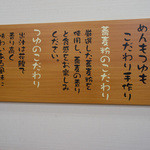 めんもつゆも
こだわり手作り
蕎麦粉のこだわり
厳選した蕎麦粉を
使用し、蕎麦の香り
と食感をお楽しみ
ください。
つゆのこだわり
出汁は花鰹で
香り高く